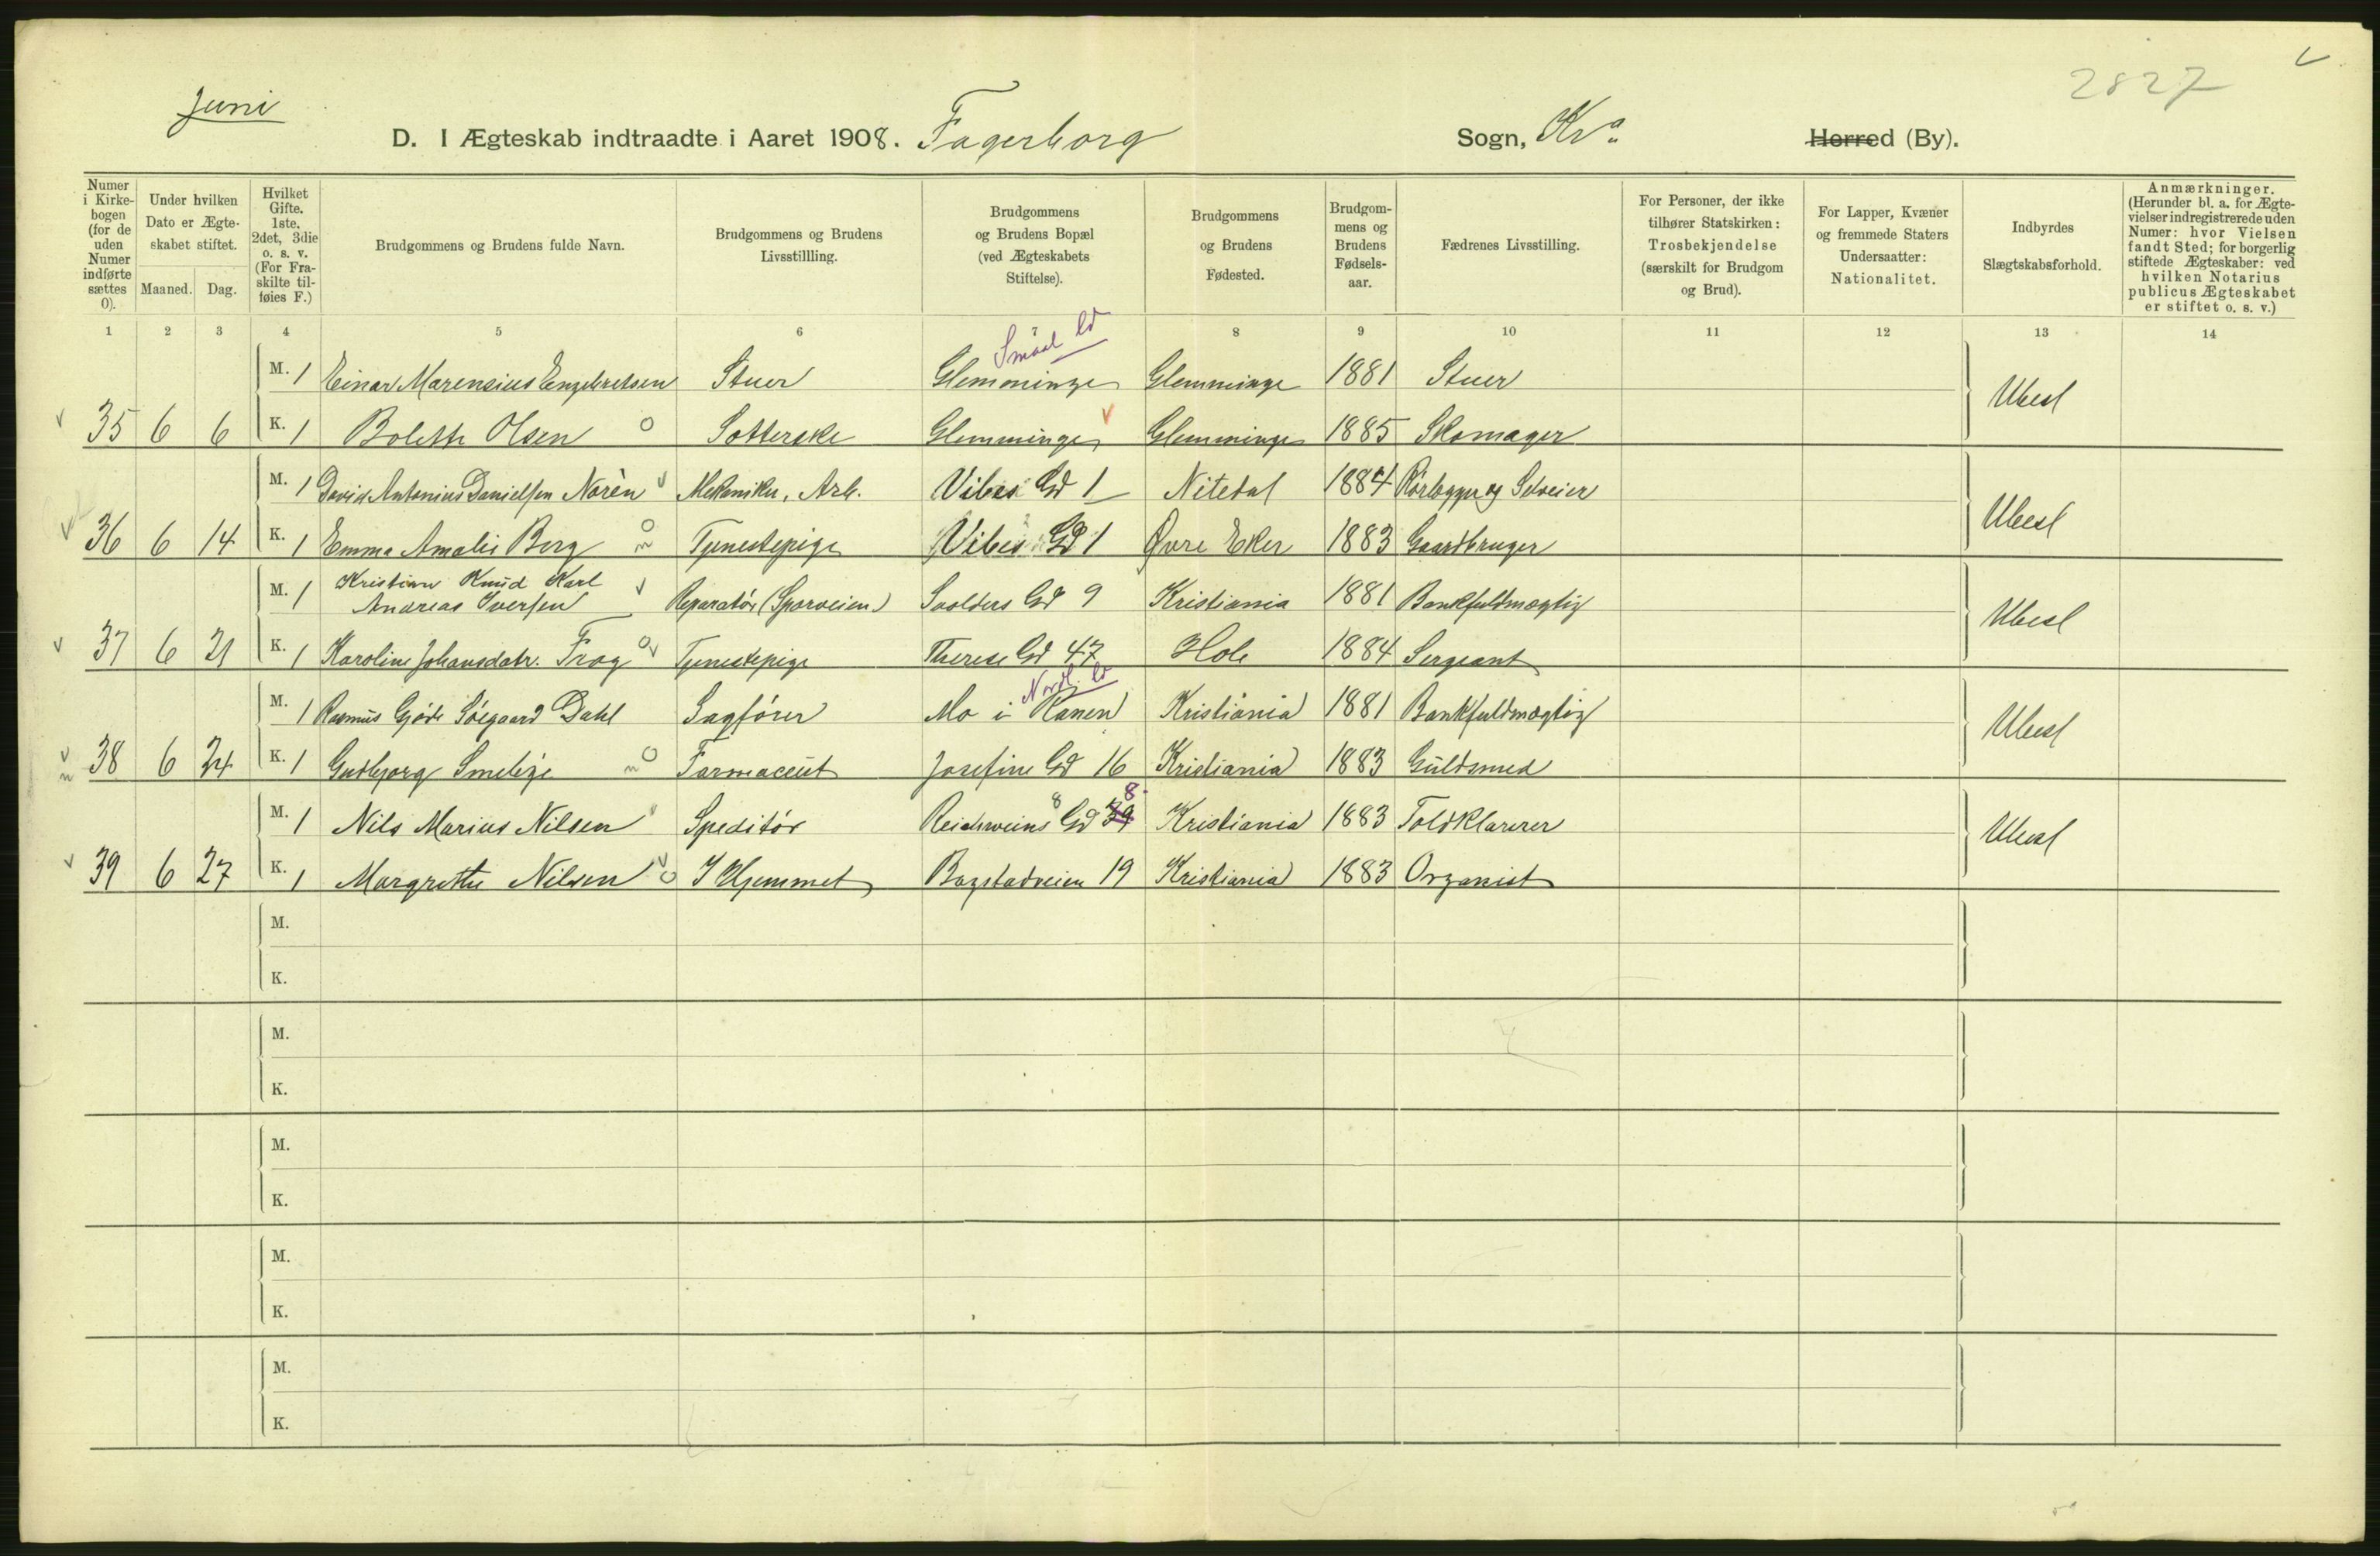 Juni
2827
D. I Ægteskab indtraadte i Aaret 1908. Fagerborg Sogn, Kra. Herred (By).
Numer i Kirkebogen (for de uden Numer indførte sættes 0).
Under hvilken Dato er Ægteskabet stiftet.
Maaned. Dag.
Hvilket Gifte. 1ste. 2det, 3die o. s. v. (For Fraskilte tilføies F.)
Brudgommens og Brudens fulde Navn.
Brudgommens og Brudens Livsstillling.
Brudgommens og Brudens Bopæl (ved Ægteskabets Stiftelse).
Brudgommens og Brudens Fødested.
Brudgommens og Brudens Fødselsaar.
Fædrenes Livsstilling.
For Personer, der ikke tilhører Statskirken: Trosbekjendelse (særskilt for Brudgom og Brud).
For Lapper, Kvæner og fremmede Staters Undersaatter: Nationalitet.
Indbyrdes Slægtskabsforhold.
Anmærkninger. (Herunder bl. a. for Ægtevielser indregistrerede uden Numer: hvor Vielsen fandt Sted; for borgerlig stiftede Ægteskaber: ved hvilken Notarius publicus Ægteskabet er stiftet o. s. v.)
1 2 3 4 5 6 7 8 9 10 11 12 13 14
Smaal
M. 1 Einar Marensius Engebretsen Stuer Glemminge Glemminge 1881 Stuer Ubesl
35 6 6 K. 1 Bolette Olsen Glemminge Glemminge 1885 Skomager
M. 1 David Antonius Danielsen Norèn Mekaniker, Arb. Vibes Gd 1 Nitedal 1884 Rørlægger og Selveier Ubesl
36 6 14 K. 1 Emma Amalie Berg Tjenestepige Vibes Gd 1 Øvre Eker 1883 Gaardbruger
M. 1 Kristian Knud Karl
Andreas Iversen Reparatør (Sporveien) Gd 9 Kristiania 1881 Bankfuldmægtig Ubesl
37 6 21 K. 1 Karoline Johansdatr. Frog Tjenestepige Therese Gd 47 Hole 1884 Sergeant
Nordl.
M. 1 Rasmus Gjøde Søegaard Dahl Sagfører Mo i Ranen Kristiania 1881 Bankfuldmægtig Ubesl
38 6 24 K. 1 Gudbjorg Farmaceut Josefine Gd 16 Kristiania 1883 Guldsmed
8
M. 1 Nils Marius Nilsen Speditør Reichweins Gd 39 Kristiania 1883 Toldklarerer Ubesl
39 6 27 K. 1 Margrethe Nilsen I Hjemmet Bogstadveien 19 Kristiania 1883 Organist
M.
K.
M.
K.
M.
K.
M.
K.
M.
K.